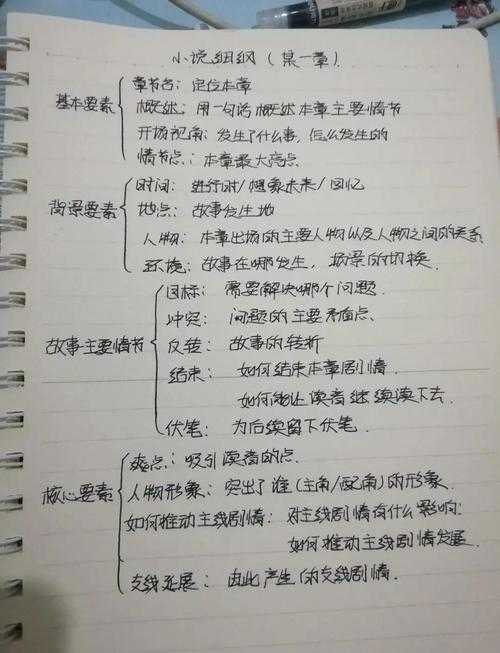 小说细纲（某一章）
基本要素
章节名：定位本章
概述：用一句话概述本章主要情节
开场视角：发生了什么事，怎么发生的
情节点：本章最大亮点
背景要素
时间：进行时/想象未来/回忆
地点：故事发生地
人物：本章出场的主要人物以及人物之间的关系
环境：故事在哪发生，场景的切换.
故事主要情节
目标：需要解决哪个问题.
冲突：问题的主要矛盾点.
反转：故事的转折
结束：如何结束本章剧情.
如何能让读者继续读下去.
伏笔：为后续留下伏笔.
核心要素
爽点：吸引读者的点.
人物形象：突出了谁（主角/配角）的形象.
如何推动主线剧情：对主线剧情有什么影响；
如何推动主线剧情发展.
支线延展：由此产生的支线剧情.